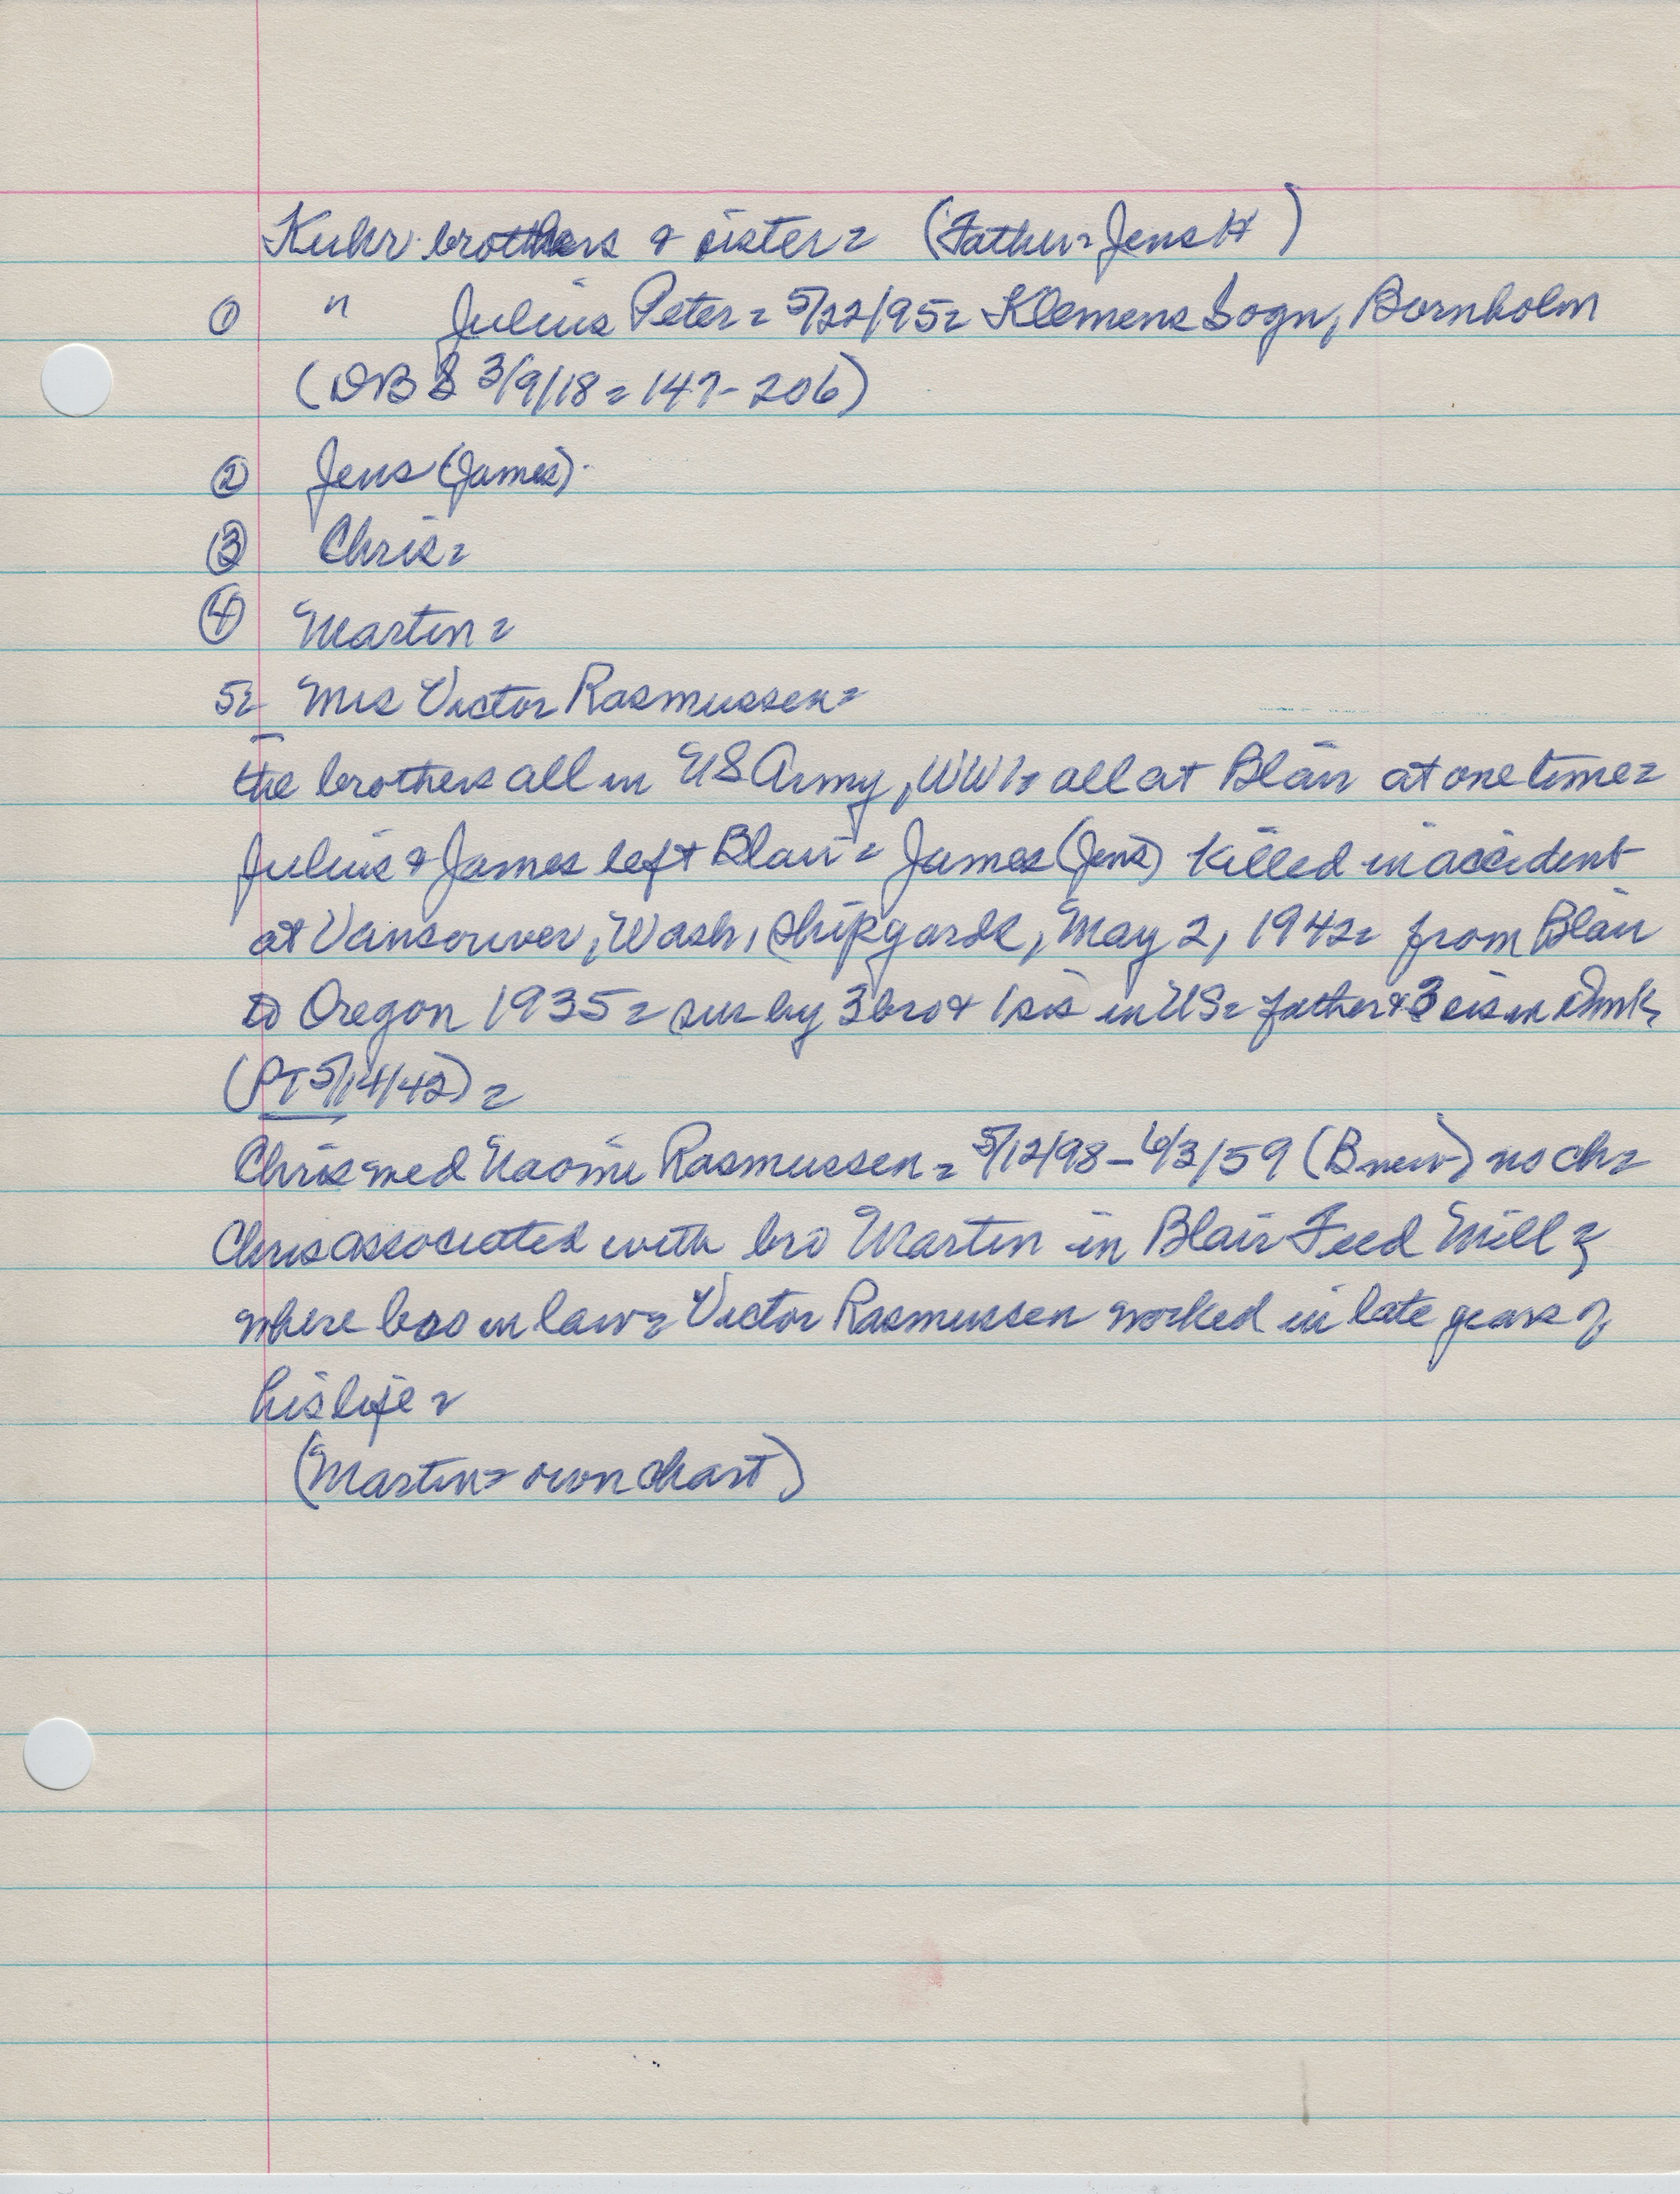 Kuhr brothers & sister = (Father = Jens H)
① " Julius Peter = 5/22/95 = Klemens Sogn, Bornholm
(DB 3/9/18 = 147-206)
② Jens (James).
③ Chris =
④ Martin =
5 = Mrs Victor Rasmussen =
the brothers all in US Army, WW1 = all at Blair at one time =
Julius & James left Blair = James (Jens) killed in accident
at Vancouver, Wash, shipyards, May 2, 1942 = from Blair
to Oregon 1935 = sur by 3 bro & 1 sis in US = father & 3 sis in Dmk,
(PT 5/14/42) =
Chris med Naomi Rasmussen = 5/12/98 - 6/3/59 (B new) no ch =
Chris associated with bro Martin in Blair Feed Mill =
where bro in law = Victor Rasmussen worked in late years of
his life =
(Martin = own chart)